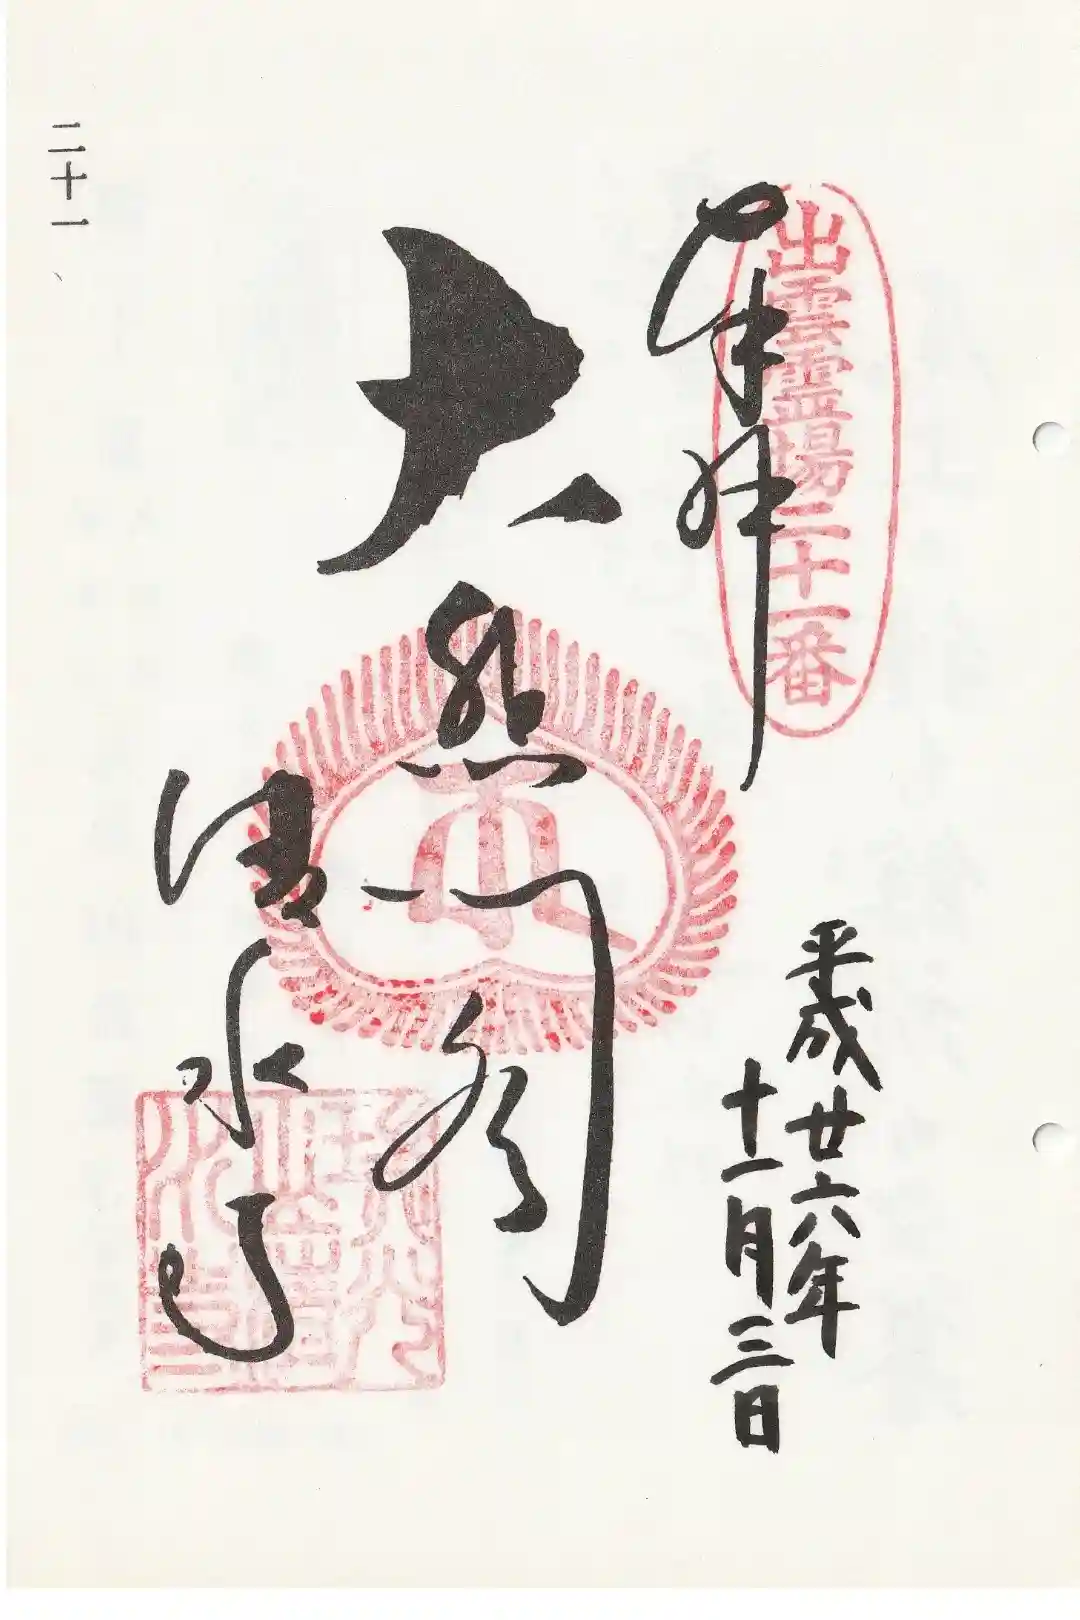 出雲霊場二十一番
奉拝
平成廿六年
十一月三日
大悲閣
清水寺
二十一